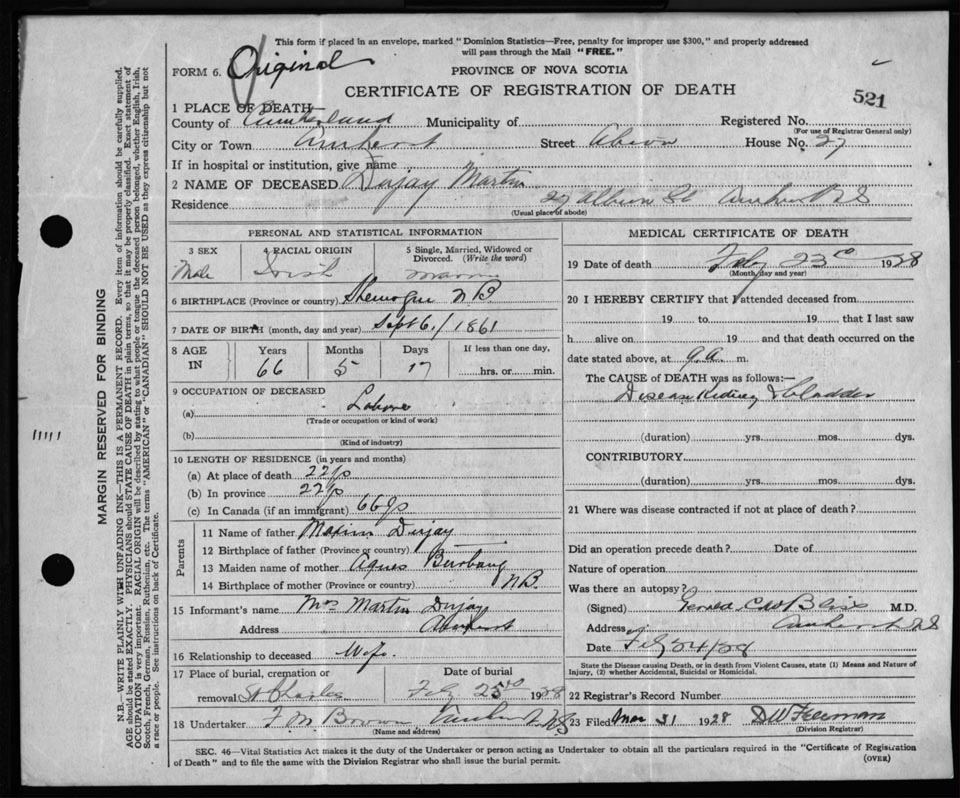 This form if placed in an envelope, marked "Dominion Statistics—Free, penalty for improper use $300," and properly addressed
will pass through the Mail "FREE."
FORM 6. Original
PROVINCE OF NOVA SCOTIA
CERTIFICATE OF REGISTRATION OF DEATH
521
1 PLACE OF DEATH—
County of Cumberland Municipality of Registered No.
(For use of Registrar General only)
City or Town Amherst Street Albion House No. 27
If in hospital or institution, give name
2 NAME OF DECEASED Durjay Martin
Residence 27 Albion St Amherst N S
(Usual place of abode)
PERSONAL AND STATISTICAL INFORMATION
3 SEX 4 RACIAL ORIGIN 5 Single, Married, Widowed or
Divorced. (Write the word)
Male Irish
6 BIRTHPLACE (Province or country) Shemogue N B.
7 DATE OF BIRTH (month, day and year) Sept 6/1861
8 AGE IN Years Months Days If less than one day,
66 5 17 hrs. or min.
9 OCCUPATION OF DECEASED
(a)
(Trade or occupation or kind of work)
(b)
(Kind of industry)
10 LENGTH OF RESIDENCE (in years and months)
(a) At place of death 22
(b) In province 22
(c) In Canada (if an immigrant) 66
Parents
11 Name of father Maxim Durjay
12 Birthplace of father (Province or country)
13 Maiden name of mother Agnes
14 Birthplace of mother (Province or country) N B.
15 Informant's name Mrs Martin Durjay
Address Amherst
16 Relationship to deceased Wife
17 Place of burial, cremation or Date of burial
removal St Charles Feb 25th 1928
18 Undertaker F M Brown Amherst N S
(Name and address)
MEDICAL CERTIFICATE OF DEATH
19 Date of death Feby 23rd 1928
(Month, day and year)
20 I HEREBY CERTIFY that I attended deceased from
19 to 19 that I last saw
h alive on 19 and that death occurred on the
date stated above, at 9 a. m.
The CAUSE of DEATH was as follows:—
Disease Kidney & bladder
(duration) yrs. mos. dys.
CONTRIBUTORY
(duration) yrs. mos. dys.
21 Where was disease contracted if not at place of death?
Did an operation precede death? Date of
Nature of operation
Was there an autopsy?
(Signed) C W Bliss M.D.
Address Amherst N S
Date Feb 24/28
State the Disease causing Death, or in death from Violent Causes, state (1) Means and Nature of
Injury, (2) whether Accidental, Suicidal or Homicidal.
22 Registrar's Record Number
23 Filed Mar 31 1928 D W Freeman
(Division Registrar)
SEC. 46—Vital Statistics Act makes it the duty of the Undertaker or person acting as Undertaker to obtain all the particulars required in the "Certificate of Registration
of Death" and to file the same with the Division Registrar who shall issue the burial permit.
(OVER)
MARGIN RESERVED FOR BINDING
N.B.—WRITE PLAINLY WITH UNFADING INK—THIS IS A PERMANENT RECORD. Every item of information should be carefully supplied.
AGE should be stated EXACTLY. PHYSICIANS should STATE CAUSE OF DEATH in plain terms, so that it may be properly classified. Exact statement of
OCCUPATION is very important. RACIAL ORIGIN will be described by stating to what people or tongue the deceased person belonged, whether English, Irish,
Scotch, French, German, Russian, Ruthenian, etc. The terms "AMERICAN" or "CANADIAN" SHOULD NOT BE USED as they express citizenship but not
a race or people. See instructions on back of Certificate.